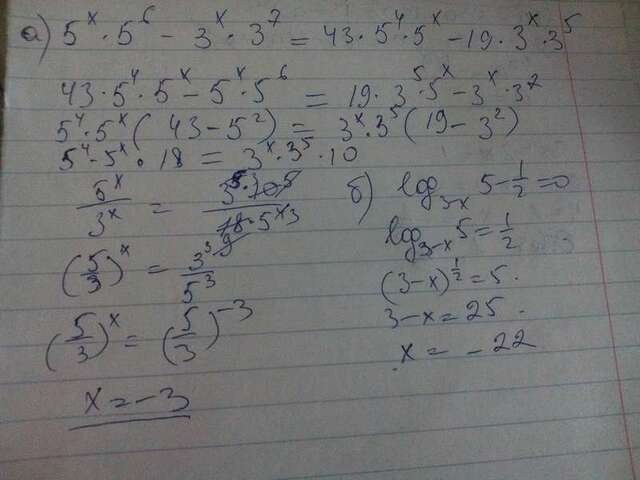 а) 5^x · 5^6 − 3^x · 3^7 = 43 · 5^4 · 5^x − 19 · 3^x · 3^5
43 · 5^4 · 5^x − 5^x · 5^6 = 19 · 3^5 · 5^x − 3^x · 3^7
5^4 · 5^x (43 − 5^2) = 3^x · 3^5 (19 − 3^2)
5^4 · 5^x · 18 = 3^x · 3^5 · 10
5^x / 3^x =
(5/3)^x = 3^3 / 5^3
(5/3)^x = (5/3)^−3
x = −3
б) log_3-x 5 − 1/2 = 0
log_3−x 5 = 1/2
(3−x)^1/2 = 5.
3−x = 25.
x = −22